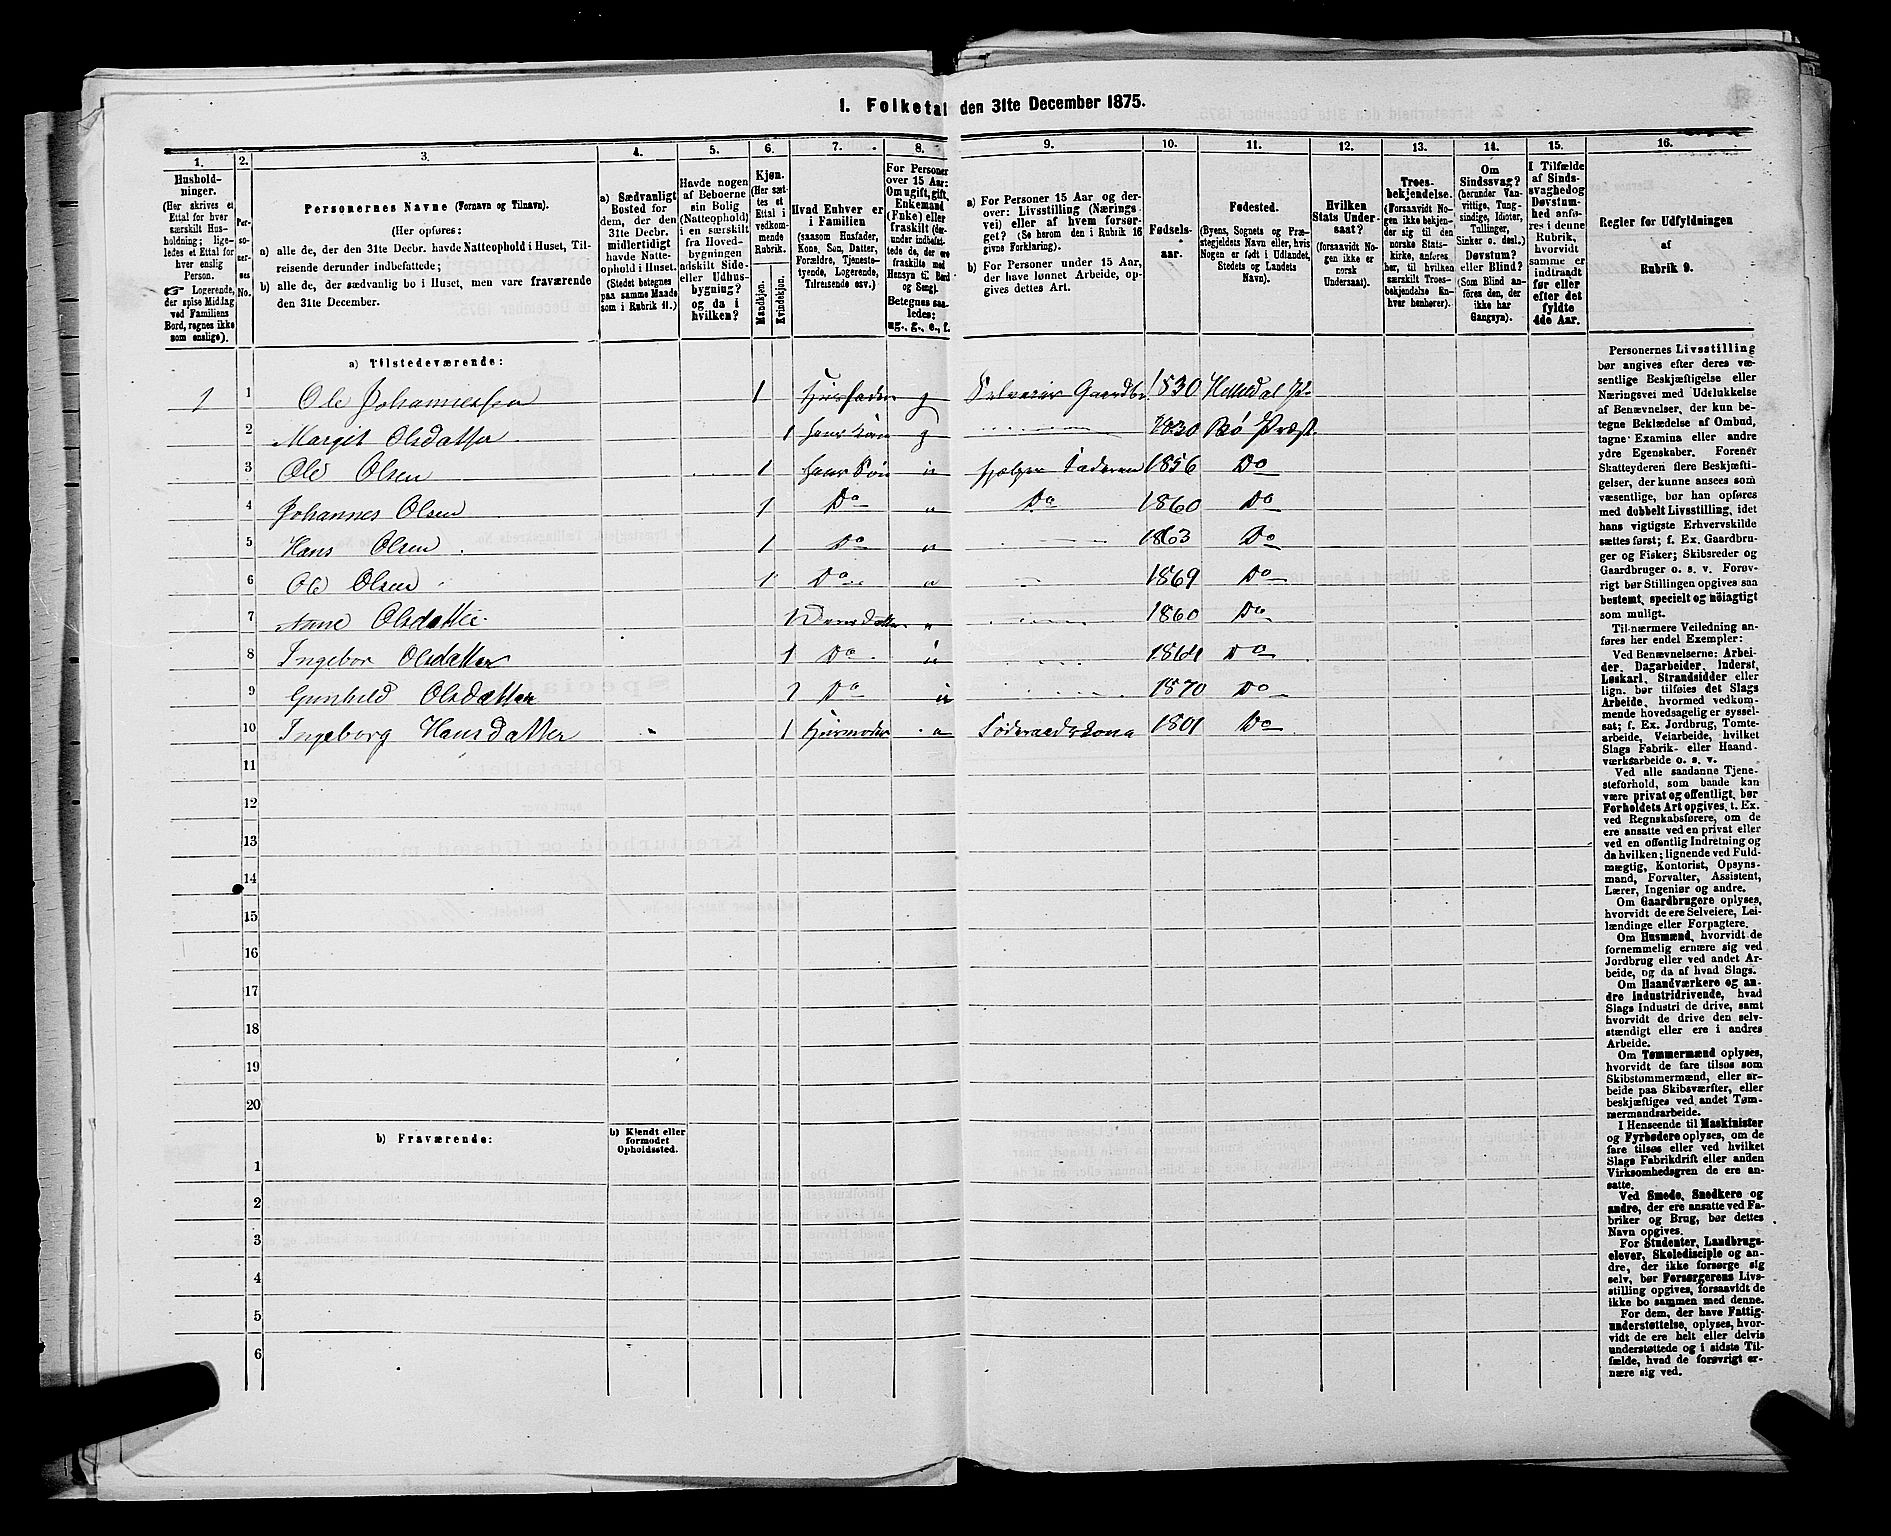 1. Folketal den 31te December 1875.
1.
2.
3.
4.
5.
6.
7.
8.
9.
10.
11.
12.
13.
14.
15.
16.
Hushold-
ninger.
(Her skrives et
Ettal for hver
særskilt Hus-
holdning; lige-
ledes et Ettal for
hver enslig
Person.
☞ Logerende,
der spise Middag
ved Familiens
Bord, regnes ikke
som enslige).
Per-
so-
ner-
nes
No.
Personernes Navne (Fornavn og Tilnavn).
(Her opføres:
a) alle de, der den 31te Decbr. havde Natteophold i Huset, Til-
reisende derunder indbefattede;
b) alle de, der sædvanlig bo i Huset, men vare fraværende
den 31te December.
a) Sædvanligt
Bosted for
dem, der den
31te Decbr.
midlertidigt
havde Natte-
ophold i Huset.
(Stedet betegnes
paa samme Maade
som i Rubrik 11.)
Havde nogen
af Beboerne
sin Bolig
(Natteophold)
i en særskilt
fra Hoved-
bygningen
adskilt Side-
eller Udhus-
bygning?
og da i
hvilken?
Kjøn.
(Her sæt-
tes et
Ettal i
vedkom-
mende
Rubrik.
Mandkjøn.
Kvindekjøn.
Hvad Enhver er
i Familien
(saasom Husfader,
Kone, Søn, Datter,
Forældre, Tjeneste-
tyende, Logerende,
Tilreisende osv.)
For Personer
over 15 Aar:
Om ugift, gift,
Enkemand
(Enke) eller
fraskilt (der-
under indbefat-
tede de, der ere
fraskilte med
Hensyn til Bord
og Seng).
Betegnes saa-
ledes:
ug., g., e., f.
a) For Personer 15 Aar og der-
over: Livsstilling (Nærings-
vei) eller af hvem forsør-
get? (Se herom den i Rubrik 16
givne Forklaring).
b) For Personer under 15 Aar,
der have lønnet Arbeide, op-
gives dettes Art.
Fødsels-
aar.
Fødested.
(Byens, Sognets og Præ-
stegjeldets Navn eller, hvis
Nogen er født i Udlandet,
Stedets og Landets
Navn).
Hvilken
Stats Under-
saat?
(forsaavidt No-
gen ikke er
norsk
Undersaat).
Troes-
bekjendelse.
(Forsaavidt No-
gen ikke bekjen-
der sig til den
norske Stats-
kirke, anføres
her, til hvilken
særskilt Troes-
bekjendelse En-
hver henhører).
Om
Sindssvag?
(herunder Van-
vittige, Tung-
sindige, Idioter,
Tullinger,
Sinker o. desl.)
Døvstum?
eller Blind?
(Som Blind an-
føres den, der
ikke har
Gangsyn).
I Tilfælde
af Sinds-
svaghed og
Døvstum-
hed anfø-
res i denne
Rubrik,
hvorvidt
samme er
indtraadt
før eller
efter det
fyldte
4de Aar.
Regler for Udfyldningen
af
Rubrik 9.
a) Tilstedeværende:
1 1 Ole Johannessen 1 Huusfader g Selveier Gaardbr. 1830
2 Margit Olsdatter 1 hans kone g 1830 Bø Præst.
3 Ole Olsen 1 hans Søn u hjelper Faderen 1856 Do
4 Johannes Olsen 1 Do " Do 1860 Do
5 Hans Olsen 1 Do " 1863 Do
6 Ole Olsen 1 Do " 1869 Do
7 Anne Olsdatter 1 " 1860 Do
8 Ingebor Olsdatter 1 Do " 1864 Do
9 Gunhild Olsdatter 1 Do " 1870 Do
10 Ingeborg Hansdatter 1 Huusmoder Föderaadskona 1801 Do
11
12
13
14
15
16
17
18
19
20
b) Fraværende:
b) Kjendt eller
formodet
Opholdssted.
1
2
3
4
5
6
Personernes Livsstilling
bør angives efter deres væ-
sentlige Beskjæftigelse eller
Næringsvei med Udelukkelse
af Benævnelser, der kun be-
tegne Beklædelse af Ombud,
tagne Examina eller andre
ydre Egenskaber. Forener
Skatteyderen flere Beskjæfti-
gelser, der kunne ansees som
væsentlige, bør han opføres
med dobbelt Livsstilling, idet
hans vigtigste Erhvervskilde
sættes først; f. Ex. Gaardbru-
ger og Fisker; Skibsreder og
Gaardbruger o. s. v. Forøv-
rigt bør Stillingen opgives saa
bestemt, specielt og nøiagtigt
som muligt.
Til nærmere Veiledning an-
føres her endel Exempler:
Ved Benævnelserne: Arbei-
der, Dagarbeider, Inderst,
Løskarl, Strandsidder eller
lign. bør tilføies det Slags
Arbeide, hvormed vedkom-
mende hovedsagelig er syssel-
sat; f. Ex. Jordbrug, Tomte-
arbeide, Veiarbeide, hvilket
Slags Fabrik- eller Haand-
værksarbeide o. s. v.
Ved alle saadanne Tjene-
steforhold, som baade kan
være privat og offentligt, bør
Forholdets Art opgives, t. Ex.
ved Regnskabsførere, om de
ere ansatte ved en privat eller
ved en offentlig Indretning og
da hvilken; lignende ved Fuld-
mægtig, Kontorist, Opsyns-
mand, Forvalter, Assistent,
Lærer, Ingeniør og andre.
Om Gaardbrugere oplyses,
hvorvidt de ere Selveiere, Lei-
lændinge eller Forpagtere.
Om Husmænd, hvorvidt de
fornemmelig ernære sig ved
Jordbrug eller ved andet Ar-
beide, og da af hvad Slags.
Om Haandværkere og an-
dre Industridrivende, hvad
Slags Industri de drive, samt
hvorvidt de drive den selv-
stændigt eller ere i andres
Arbeide.
Om Tømmermænd oplyses,
hvorvidt de fare tilsøs som
Skibstømmermænd, eller ar-
beide paa Skibsværfter, eller
beskjæftiges ved andet Tøm-
mermandsarbeide.
I Henseende til Maskinister
og Fyrbødere oplyses, om de
fare tilsøs eller ved hvilket
Slags Fabrikdrift eller anden
Virksomhedsgren de ere an-
satte.
Ved Smede, Snedkere og
andre, der ere ansatte ved Fa-
briker og Brug, bør dettes
Navn opgives.
For Studenter, Landbrugs-
elever, Skoledisciple og an-
dre, der ikke forsørge sig
selv, bør Forsørgerens Livs-
stilling opgives, forsaavidt de
ikke bo sammen med denne.
For dem, der have Fattig-
understøttelse, oplyses, hvor-
vidt de ere helt eller delvis
understøttede og i sidste Til-
fælde, hvad de forøvrigt er-
nære sig ved.